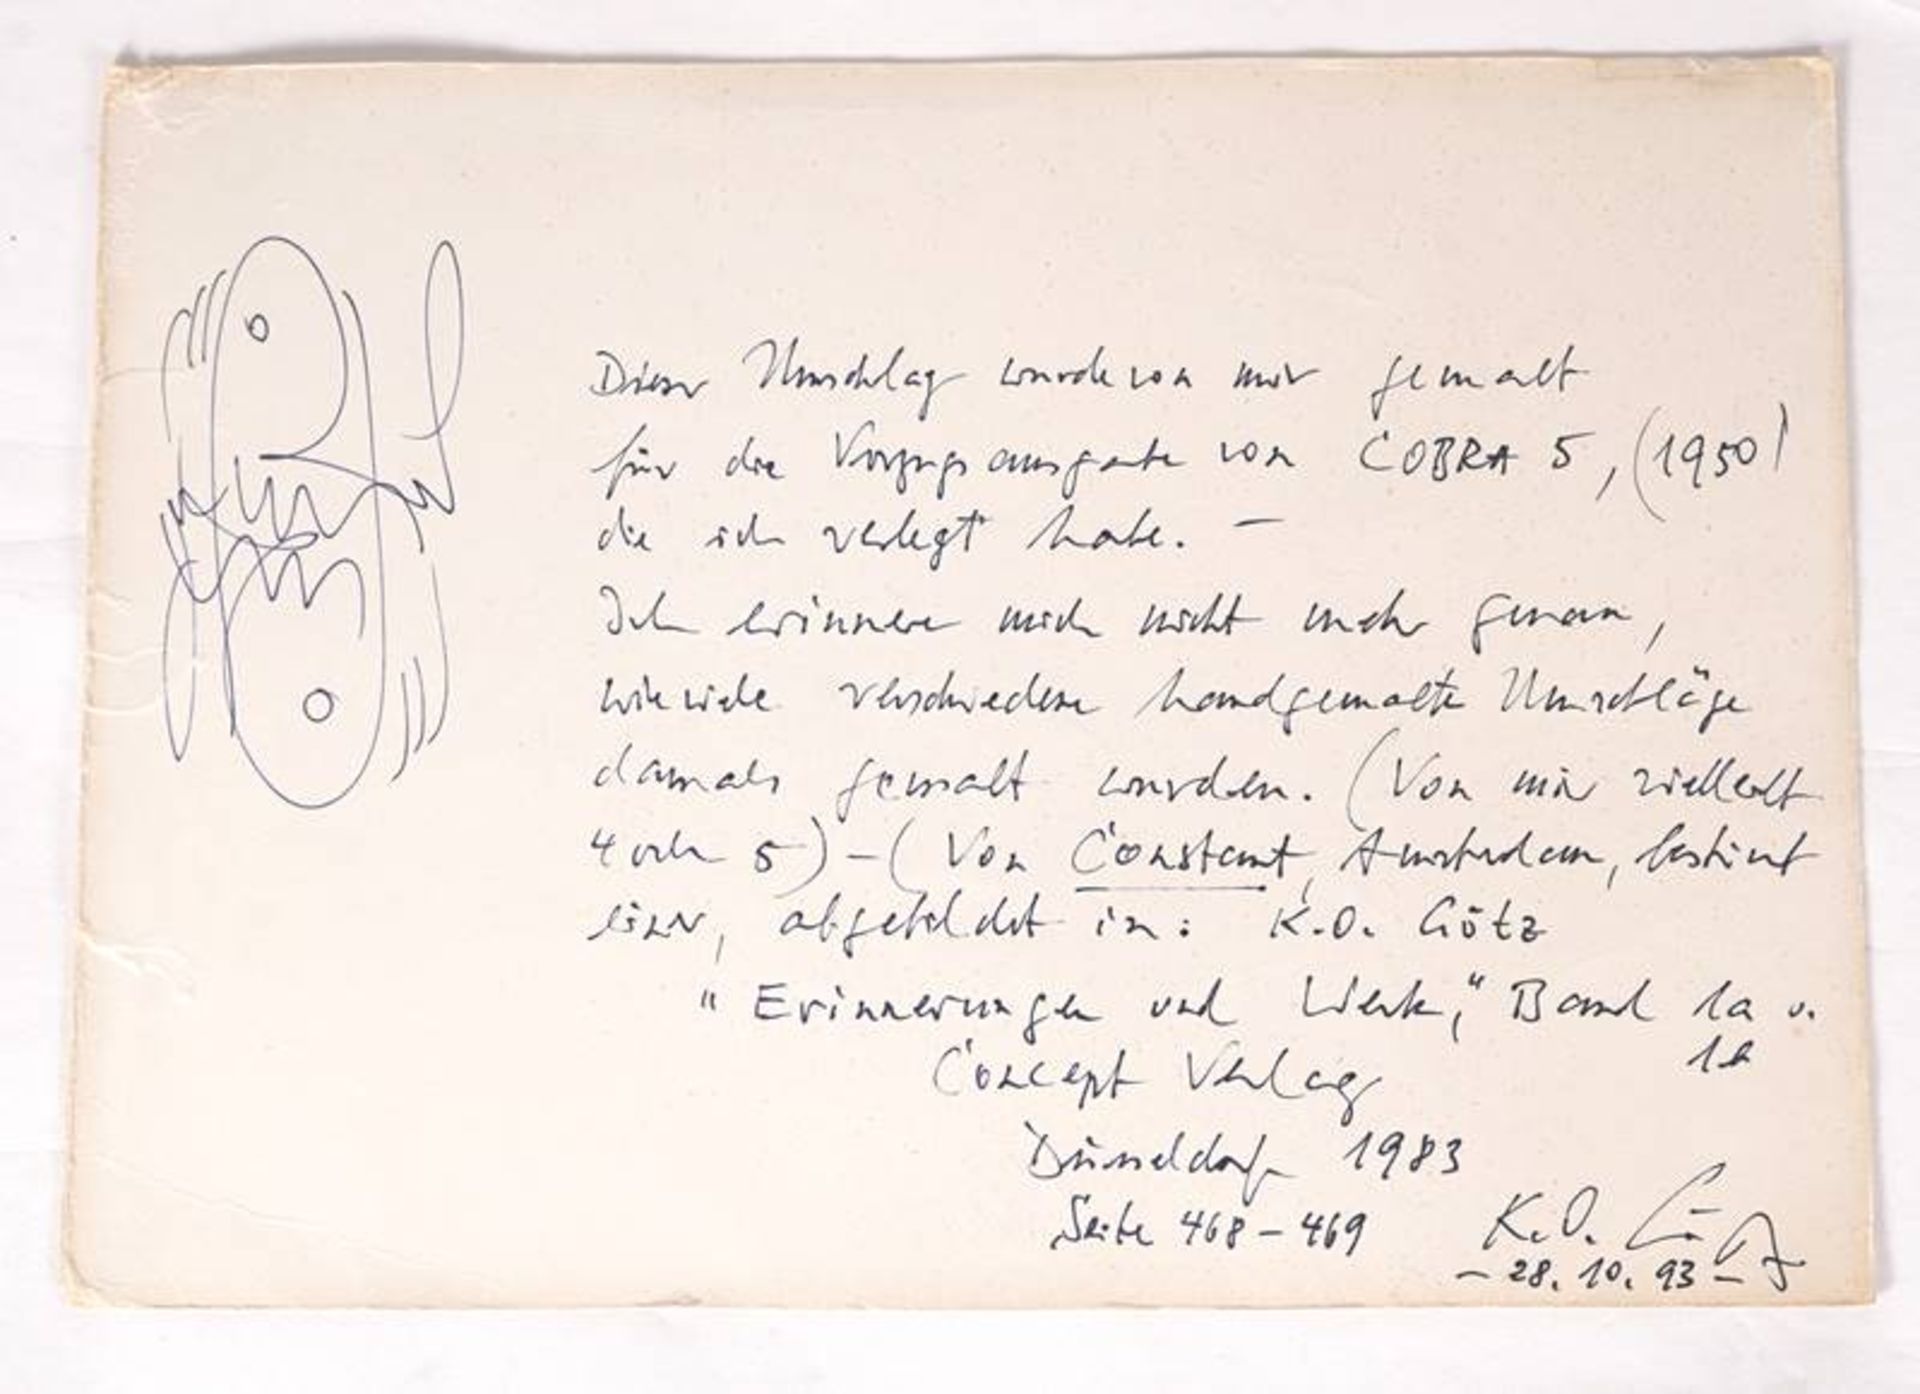 Dieser Umschlag wurde von mir gemalt
für die Vorzugsausgabe von COBRA 5, (1950)
die ich verlegt habe. –
Ich erinnere mich nicht mehr genau,
wieviele verschiedene handgemalte Umschläge
damals gemalt wurden. (Von mir vielleicht
4 oder 5) – (Von Constant, Amsterdam, bestimmt
einer, abgebildet in: K.O. Götz
"Erinnerungen und Werk," Band 1a u.
1b
Concept Verlag
Düsseldorf 1983
Seite 468 – 469
K.O. Götz
– 28. 10. 93 –